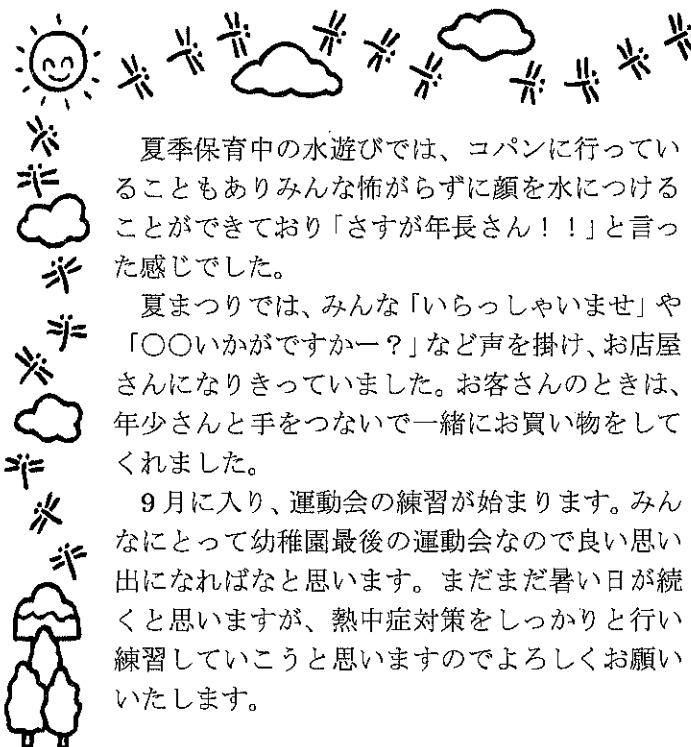 夏季保育中の水遊びでは、コパンに行ってい
ることもありみんな怖がらずに顔を水につける
ことができており「さすが年長さん！！」と言っ
た感じでした。
　夏まつりでは、みんな「いらっしゃいませ」や
「〇〇いかがですかー？」など声を掛け、お店屋
さんになりきっていました。お客さんのときは、
年少さんと手をつないで一緒にお買い物をして
くれました。
　9月に入り、運動会の練習が始まります。みん
なにとって幼稚園最後の運動会なので良い思い
出になればなと思います。まだまだ暑い日が続
くと思いますが、熱中症対策をしっかりと行い
練習していこうと思いますのでよろしくお願い
いたします。